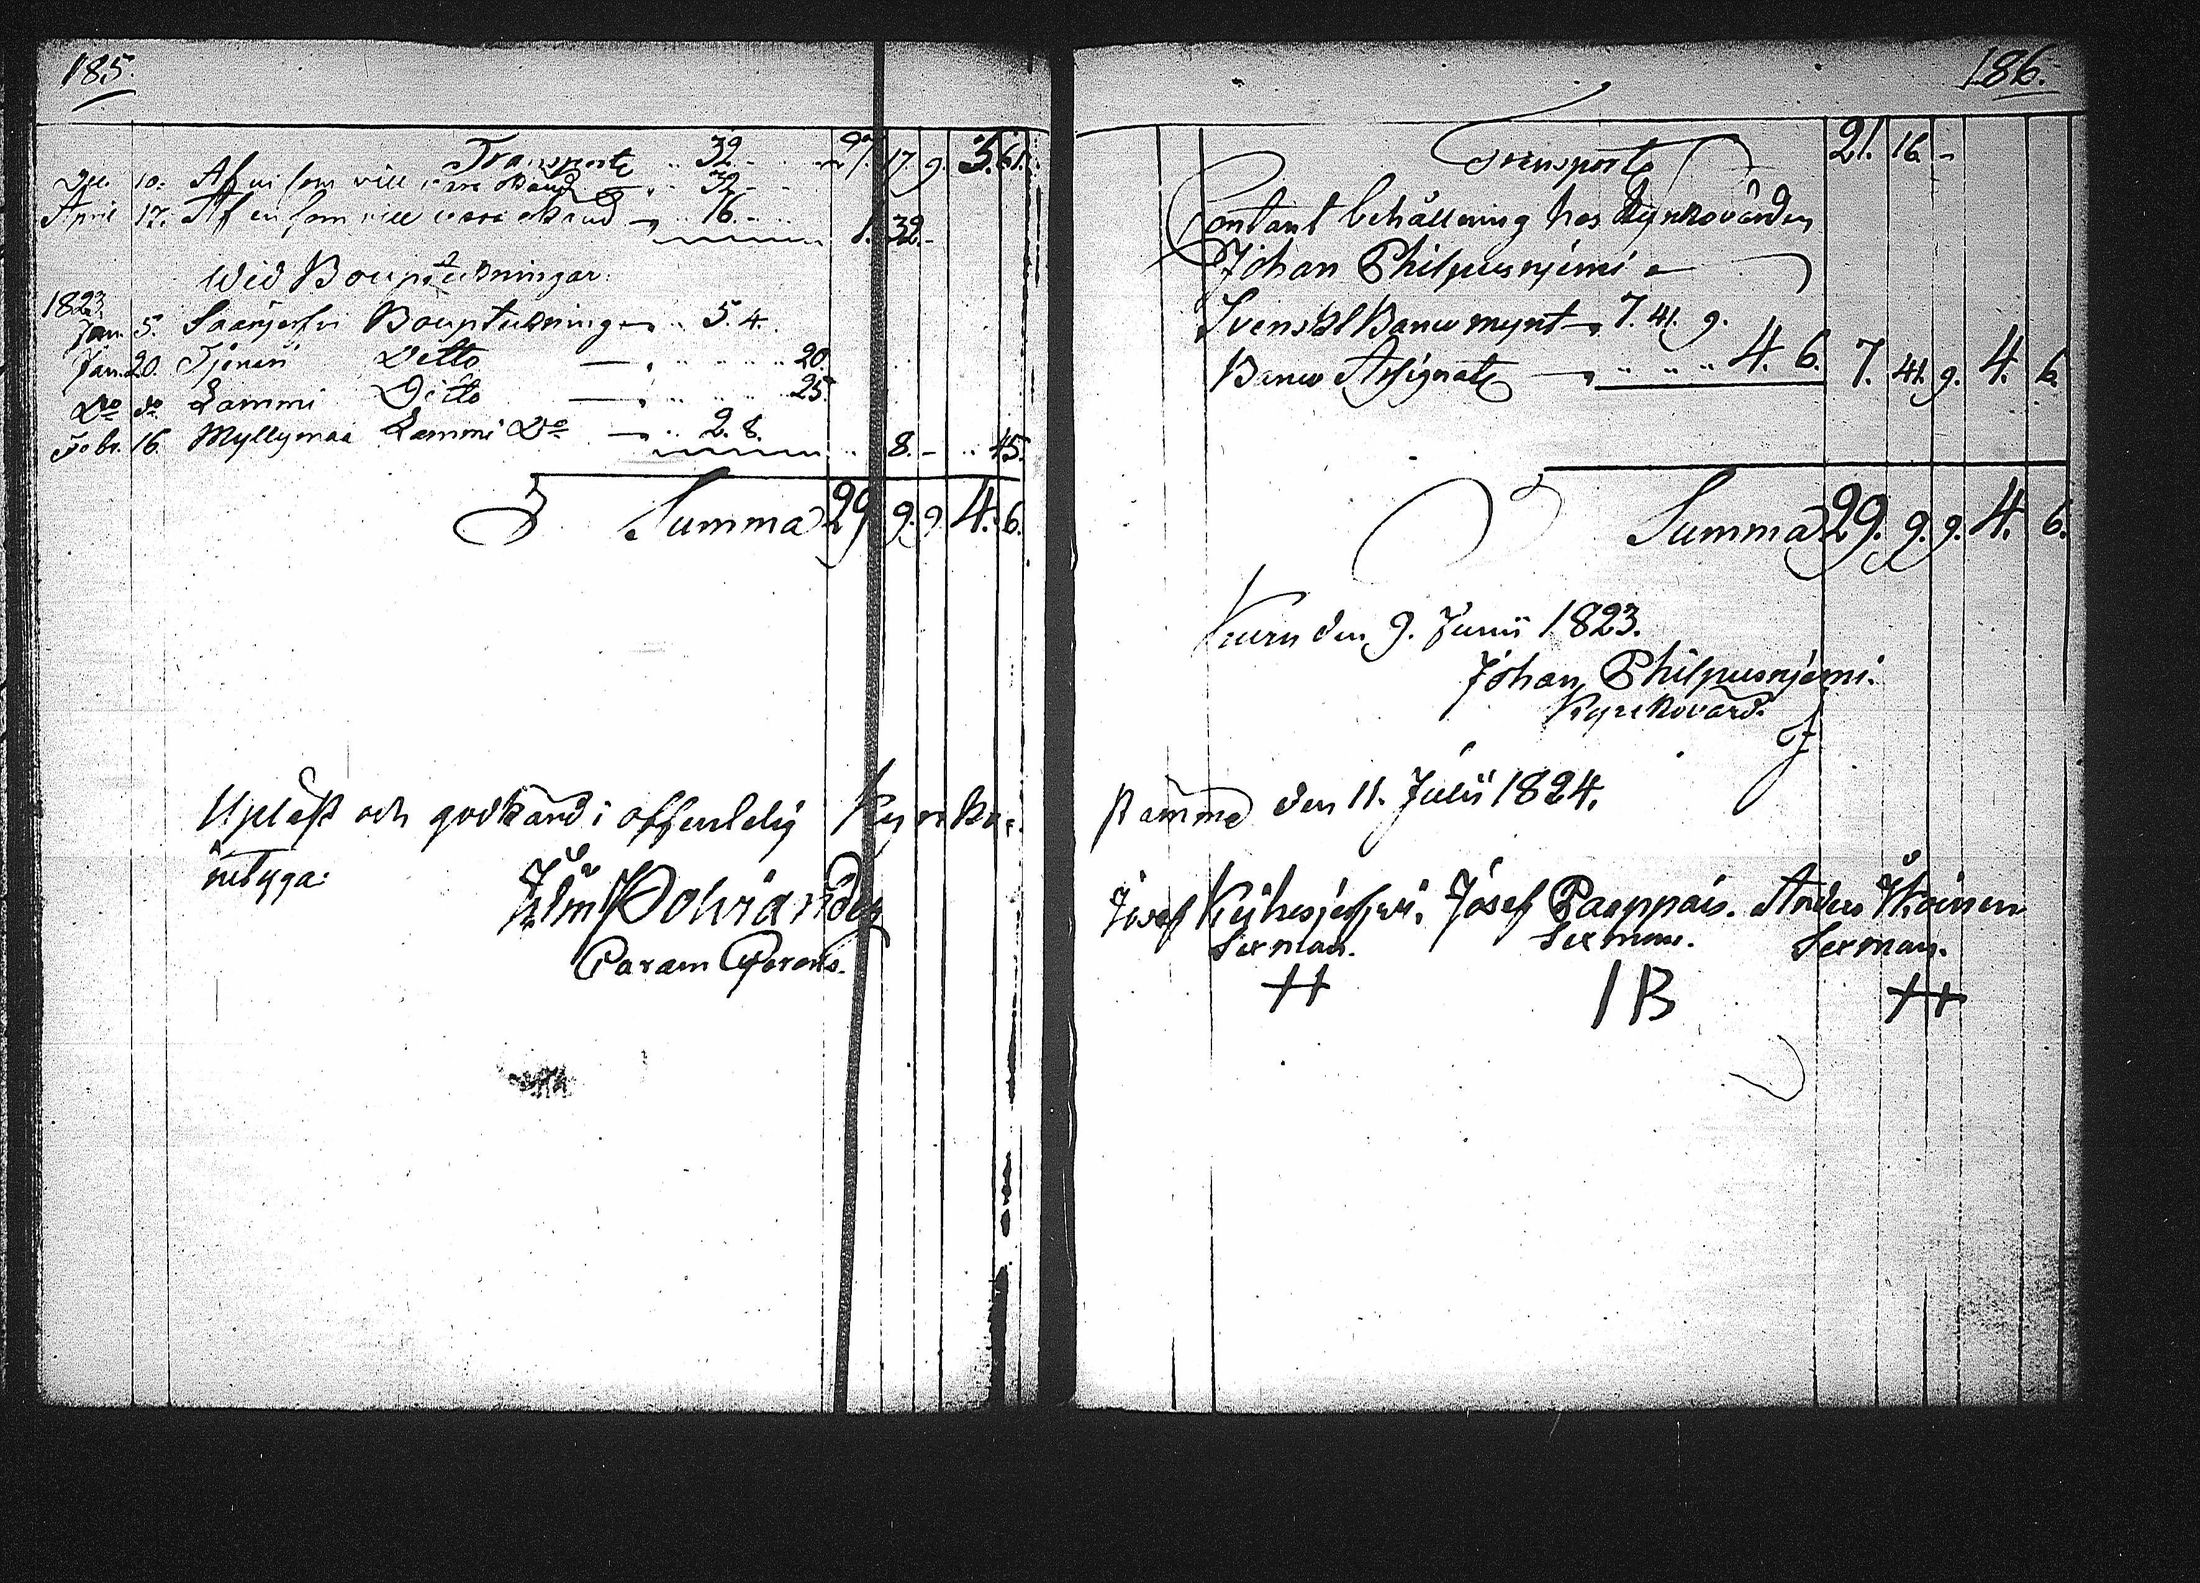 185.
Transport .. 32. - 27. 17. 9. 3. 61.
Dec. 10. Af en som vill vara okänd .. 32 -
April 17. Af en som vill vara okänd .. 16. - 1. 32. -
Wid Bouptekningar.
1823.
Jan. 5. Saarijerfvi Bouptekning .. 5. 4.
Jan. 20. Tjoneri Ditto — 20.
Do do Lammi Ditto — 25.
Febr. 16. Myllymaa Lammi Do — .. 2. 8. .. 8. - .. 45.
Summa 29 9. 9. 4. 6.
Upläst och godkänd i offentelig Kyrko-
intyga:
Joh: Wm Polviander
Param Gerens.
186.
Transport 21. 16. -
Contant behållning hos Kyrkovärden
Johan Philpusnjemi
Svenskt Banco mynt 7. 41. 9.
Banco Assignat .. .. .. 4. 6. 7. 41. 9. 4. 6.
Summa 29. 9. 9. 4. 6.
den 9. Junii 1823.
Johan Philpusnjemi.
Kyrkovärd.
stämma den 11. Julii 1824.
Josef Kyhesjerfvi. Josef Paappais. Anders
Sexman. Sexman. Sexman.
++ IB ++